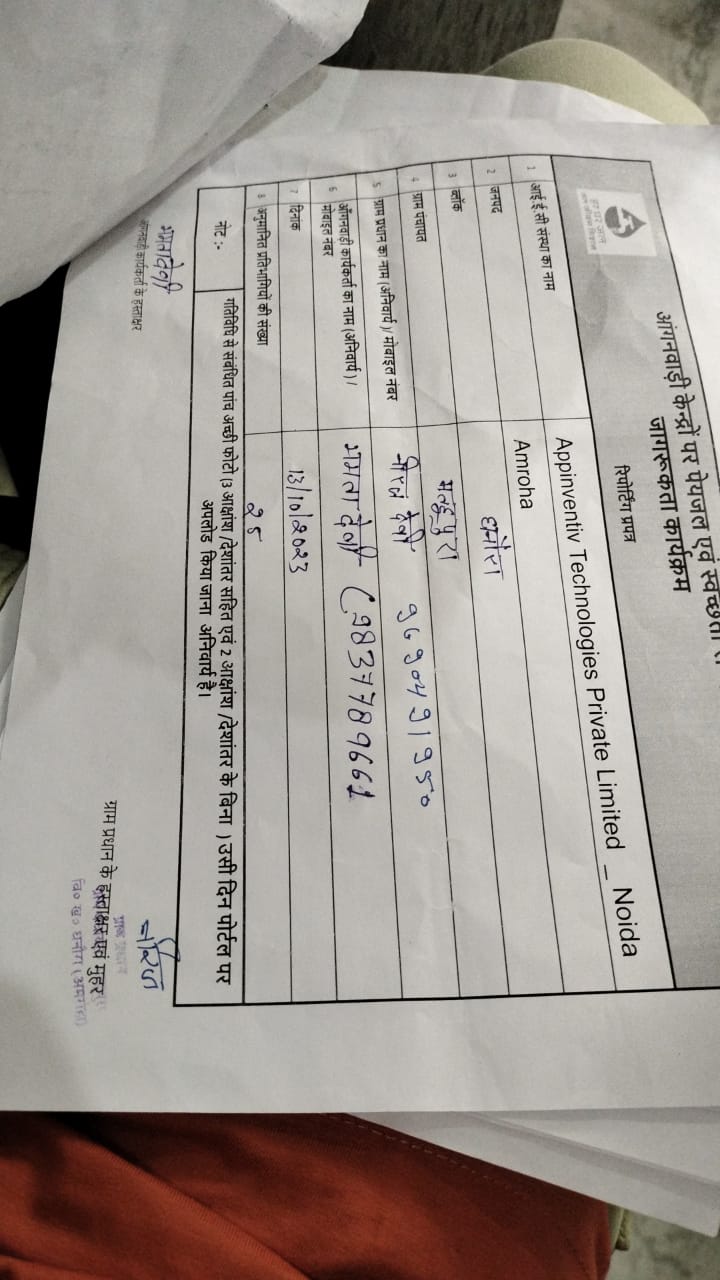 हर घर जल
जल जीवन मिशन
आंगनवाड़ी केन्द्रों पर पेयजल एवं स्वच्छता
जागरूकता कार्यक्रम
रिपोर्टिंग प्रपत्र
1 आई.ई.सी संस्था का नाम Appinventiv Technologies Private Limited _ Noida
2 जनपद Amroha
3 ब्लॉक धनौरा
4 ग्राम पंचायत
5 ग्राम प्रधान का नाम (अनिवार्य )/ मोबाइल नंबर देवी
6 आँगनवाड़ी कार्यकर्ता का नाम (अनिवार्य )/ ममता देवी (9837789661
मोबाइल नंबर
7 दिनांक 13/10/2023
8 अनुमानित प्रतिभागियों की संख्या
नोट :- गतिविधि से संबंधित पांच अच्छी फोटो (3 आक्षांश /देशांतर सहित एवं 2 आक्षांश /देशांतर के बिना ) उसी दिन पोर्टल पर
अपलोड किया जाना अनिवार्य है।
ममता देवी
आंगनवाड़ी कार्यकर्ता के हस्ताक्षर
ग्राम प्रधान के हस्ताक्षर एवं मुहर